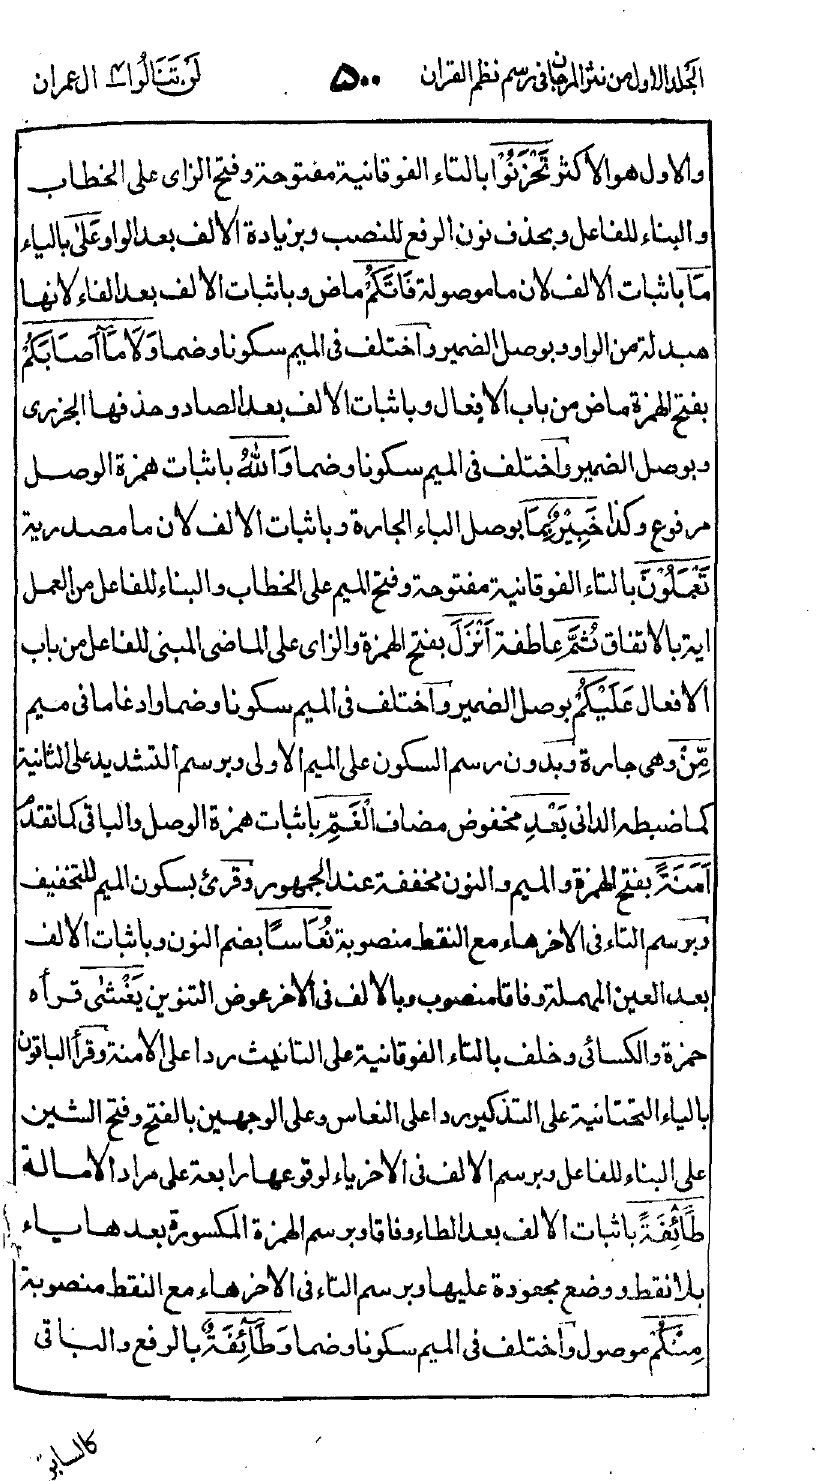 الجلد الاول من نثر المرجان فی رسم نظم القران ۵۰۰ لَنْ تَنَالُوا ۴ ال عمران
والاول هو الاكثر تَحْزَنُوْا بالتاء الفوقانية مفتوحة وفتح الزای علی الخطاب
والبناء للفاعل وبحذف نون الرفع للنصب وبزيادة الالف بعد الواو عَلٰی بالياء
مَا باثبات الالف لان ما موصولة فَاتَكُمْ ماض وباثبات الالف بعد الفاء لانها
مبدلة من الواو وبوصل الضمير واختلف فی الميم سكونا وضما وَلَا مَآ اَصَابَكُمْ
بفتح الهمزة ماض من باب الافعال وباثبات الالف بعد الصاد وحذفها الجزری
وبوصل الضمير واختلف فی الميم سكونا وضما وَاللّٰهُ باثبات همزة الوصل
مرفوع وكذا خَبِيْرٌۢ بِمَا بوصل الباء الجارة وباثبات الالف لان ما مصدرية
تَعْمَلُوْنَ بالتاء الفوقانية مفتوحة وفتح الميم علی الخطاب والبناء للفاعل من العمل
اية بالاتفاق ثُمَّ عاطفة اَنْزَلَ بفتح الهمزة والزای علی الماضی المبنی للفاعل من باب
الافعال عَلَيْكُمْ بوصل الضمير واختلف فی الميم سكونا وضما وادغاما فی ميم
مِّنْ وهی جارة وبدون رسم السكون علی الميم الاولی وبرسم التشديد علی الثانية
كما ضبطه الدانی بَعْدِ مخفوض مضاف الْغَمِّ باثبات همزة الوصل والباقی كما تقدم
اَمَنَةً بفتح الهمزة والميم والنون مخففة عند الجمهور وقرئ بسكون الميم للتخفيف
وبرسم التاء فی الاخر هاء مع النقط منصوبة نُعَاسًا بضم النون وباثبات الالف
بعد العين المهملة وفاقا منصوب وبالالف فی الاخر عوض التنوين يَغْشٰی قرأه
حمزة والكسائی وخلف بالتاء الفوقانية علی التانيث ردا علی الامنة وقرأ الباقون
بالياء التحتانية علی التذكير ردا علی النعاس وعلی الوجهين بالفتح وفتح الشين
علی البناء للفاعل وبرسم الالف فی الاخر ياء لوقوعها رابعة علی مراد الامالة
طَآئِفَةً باثبات الالف بعد الطاء وفاقا وبرسم الهمزة المكسورة بعدها ياء
بلا نقط ووضع مجعودة عليها وبرسم التاء فی الاخر هاء مع النقط منصوبة
مِنْكُمْ موصول واختلف فی الميم سكونا وضما وَطَآئِفَةٌ بالرفع والباقی
كالسابق